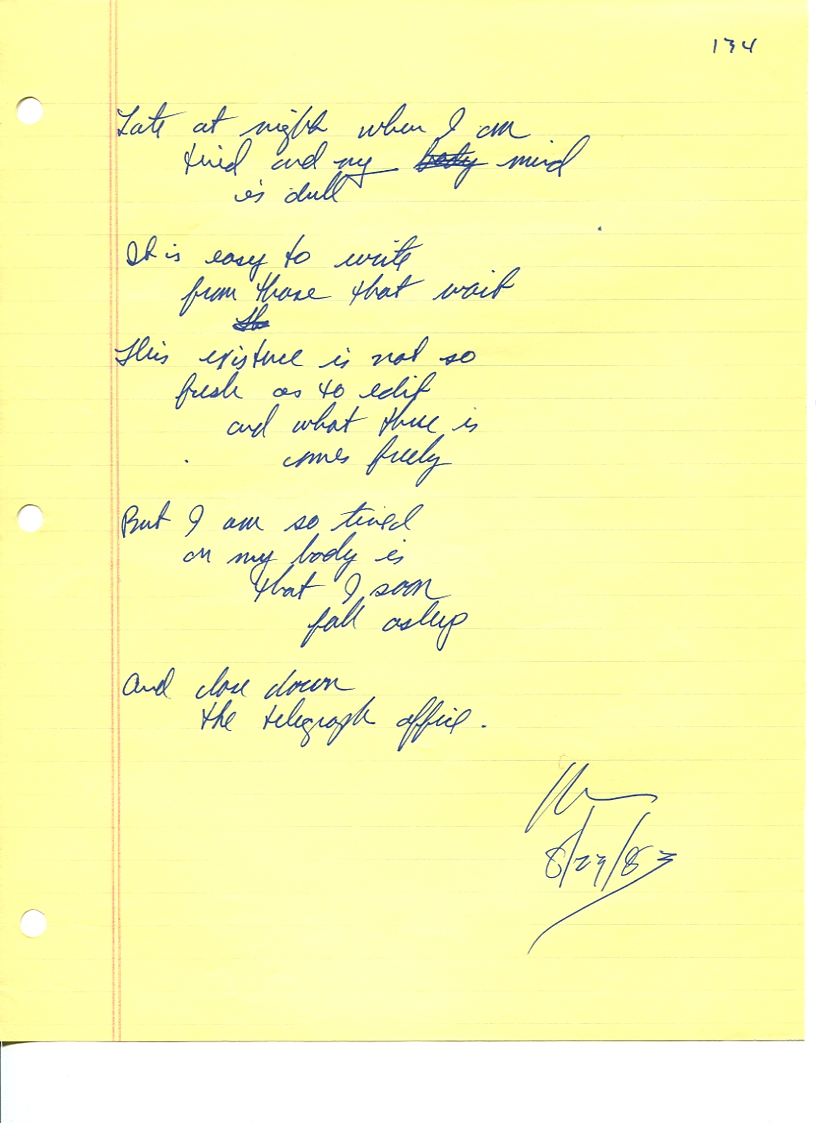 134
Late at night when I am
tired and my body mind
is dull
It is easy to write
from those that wait
Th
This existence is not so
fresh as to edit
and what there is
comes freely
But I am so tired
or my body is
that I soon
fall asleep
And close down
the telegraph office.
8/29/83